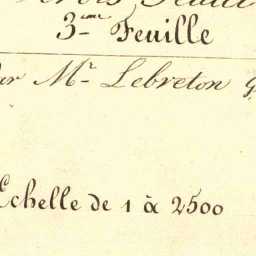 3.me Feuille
Mr. Lebreton
Echelle de 1 à 2500